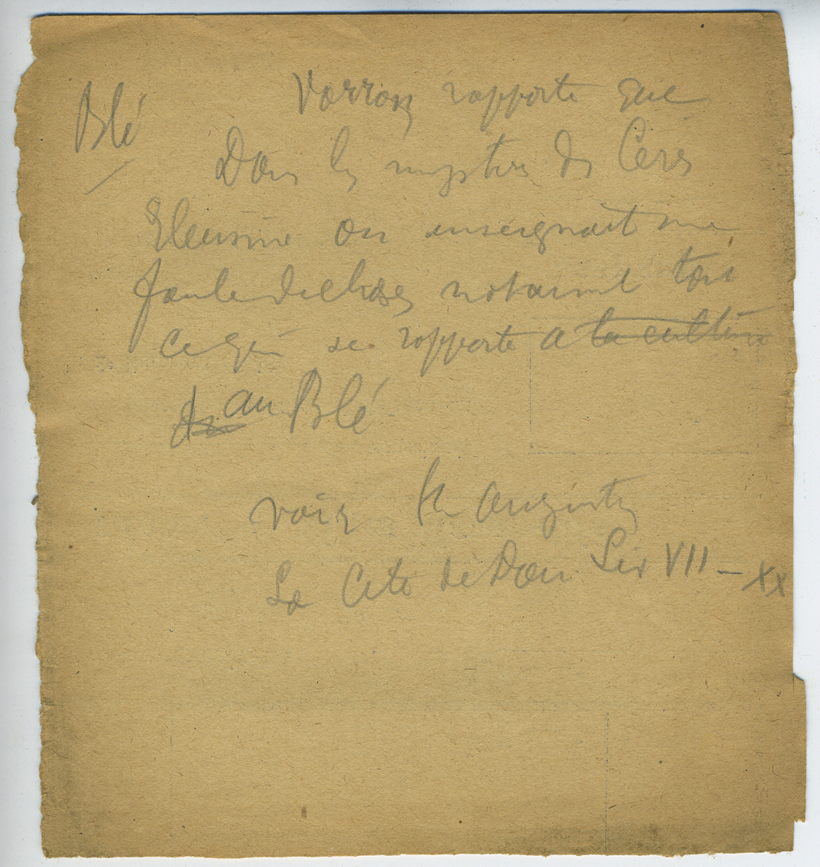 Blé Varron rapporte que
Dans les mystères de Cérès
Eleusine on enseignait une
foule de choses notamment tout
ce qui se rapporte a la culture
du au Blé
voir St Augustin
La Cité de Dieu Liv VII – XX